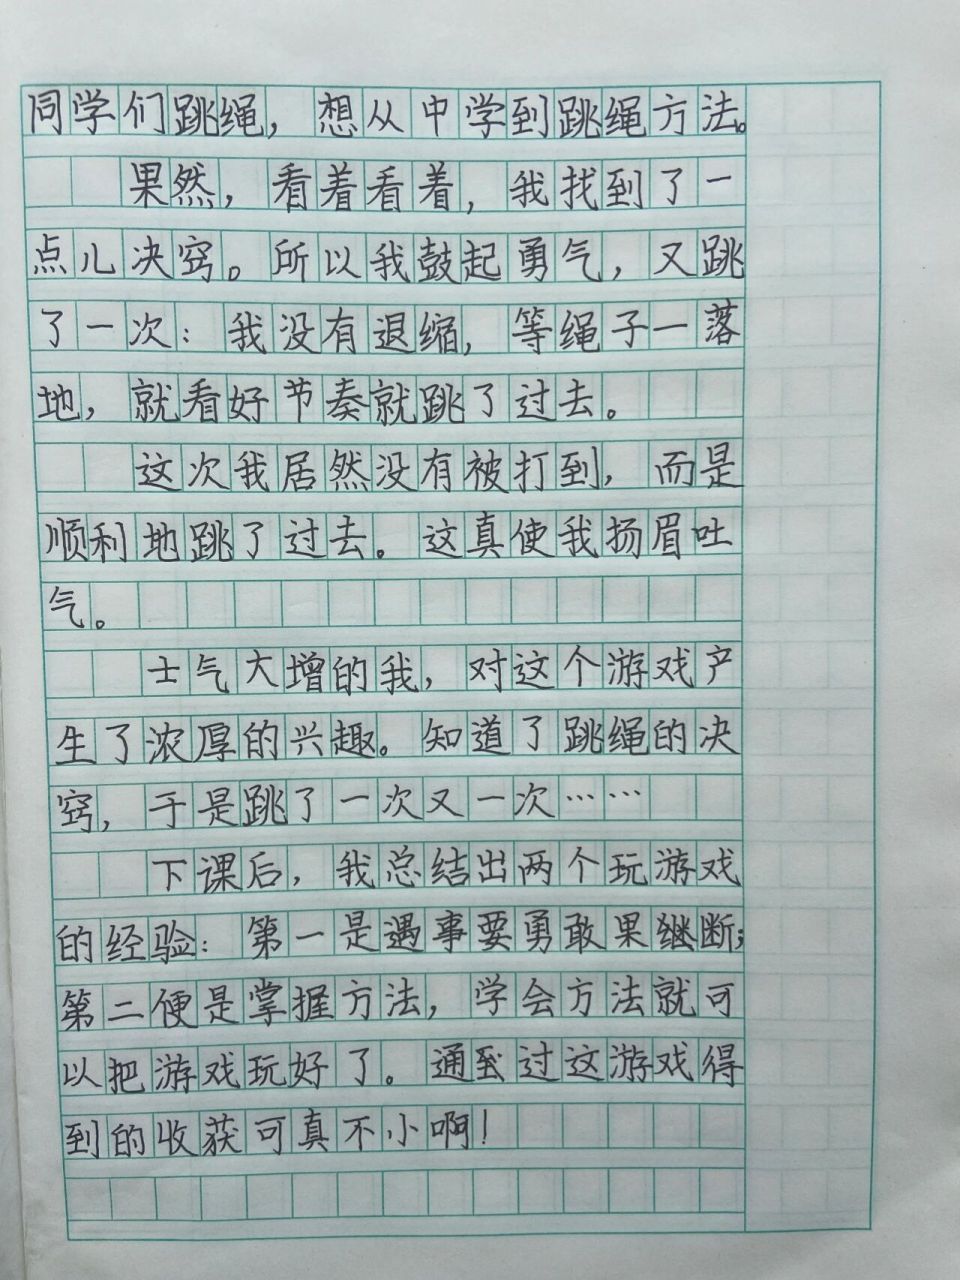 同学们跳绳，想从中学到跳绳方法。
果然，看着看着，我找到了一
点儿决窍。所以我鼓起勇气，又跳
了一次：我没有退缩，等绳子一落
地，就看好节奏就跳了过去。
这次我居然没有被打到，而是
顺利地跳了过去。这真使我扬眉吐
气。
士气大增的我，对这个游戏产
生了浓厚的兴趣。知道了跳绳的决
窍，于是跳了一次又一次……
下课后，我总结出两个玩游戏
的经验：第一是遇事要勇敢果继断；
第二便是掌握方法，学会方法就可
以把游戏玩好了。通过这游戏得
到的收获可真不小啊！